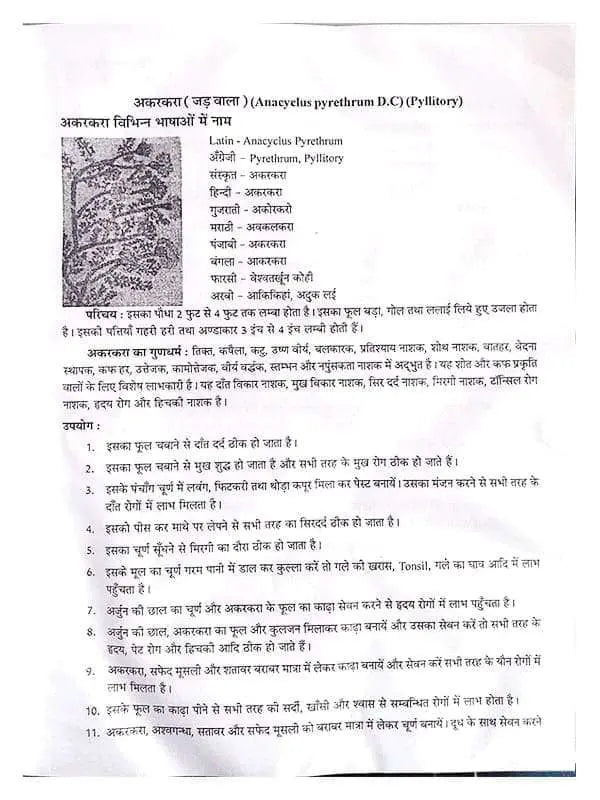 अकरकरा ( जड़ वाला ) (Anacyclus pyrethrum D.C) (Pyllitory)
अकरकरा विभिन्न भाषाओं में नाम
Latin - Anacyclus Pyrethrum
अँग्रेजी – Pyrethrum, Pyllitory
संस्कृत – अकरकरा
हिन्दी – अकरकरा
गुजराती – अकोरकरो
मराठी – अक्कलकरा
पंजाबी – अकरकरा
बंगला – आकरकरा
फारसी – वेश्वतर्खून कोही
अरबी – आकिकिहां, अदुक लई
परिचय : इसका पौधा 2 फुट से 4 फुट तक लम्बा होता है। इसका फूल बड़ा, गोल तथा ललाई लिये हुए उजला होता
है। इसकी पत्तियाँ गहरी हरी तथा अण्डाकार 3 इंच से 4 इंच लम्बी होती हैं।
अकरकरा का गुणधर्म : तिक्त, कषैला, कटु, उष्ण वीर्य, बलकारक, प्रतिश्याय नाशक, शोथ नाशक, वातहर, वेदना
स्थापक, कफ हर, उत्तेजक, कामोत्तेजक, वीर्य वर्द्धक, स्तम्भन और नपुंसकता नाशक में अद्भुत है। यह शीत और कफ प्रकृति
वालों के लिए विशेष लाभकारी है। यह दाँत विकार नाशक, मुख विकार नाशक, सिर दर्द नाशक, मिरगी नाशक, टॉन्सिल रोग
नाशक, हृदय रोग और हिचकी नाशक है।
उपयोग :
1. इसका फूल चबाने से दाँत दर्द ठीक हो जाता है।
2. इसका फूल चबाने से मुख शुद्ध हो जाता है और सभी तरह के मुख रोग ठीक हो जाते हैं।
3. इसके पंचाँग चूर्ण में लवंग, फिटकरी तथा थोड़ा कपूर मिला कर पेस्ट बनायें। उसका मंजन करने से सभी तरह के
दाँत रोगों में लाभ मिलता है।
4. इसको पीस कर माथे पर लेपने से सभी तरह का सिरदर्द ठीक हो जाता है।
5. इसका चूर्ण सूँघने से मिरगी का दौरा ठीक हो जाता है।
6. इसके मूल का चूर्ण गरम पानी में डाल कर कुल्ला करें तो गले की खरास, Tonsil, गले का घाव आदि में लाभ
पहुँचता है।
7. अर्जुन की छाल का चूर्ण और अकरकरा के फूल का काढ़ा सेवन करने से हृदय रोगों में लाभ पहुँचता है।
8. अर्जुन की छाल, अकरकरा का फूल और कुलजन मिलाकर काढ़ा बनायें और उसका सेबन करें तो सभी तरह के
हृदय, पेट रोग और हिचकी आदि ठीक हो जाते हैं।
9. अकरकरा, सफेद मूसली और शतावर बराबर मात्रा में लेकर काढ़ा बनायें और सेवन करें सभी तरह के यौन रोगों में
लाभ मिलता है।
10. इसके फूल का काढ़ा पीने से सभी तरह की सर्दी, खाँसी और श्वास से सम्बन्धित रोगों में लाभ होता है।
11. अकरकरा, अश्वगन्धा, सतावर और सफेद मूसली को बराबर मात्रा में लेकर चूर्ण बनायें। दूध के साथ सेवन करने